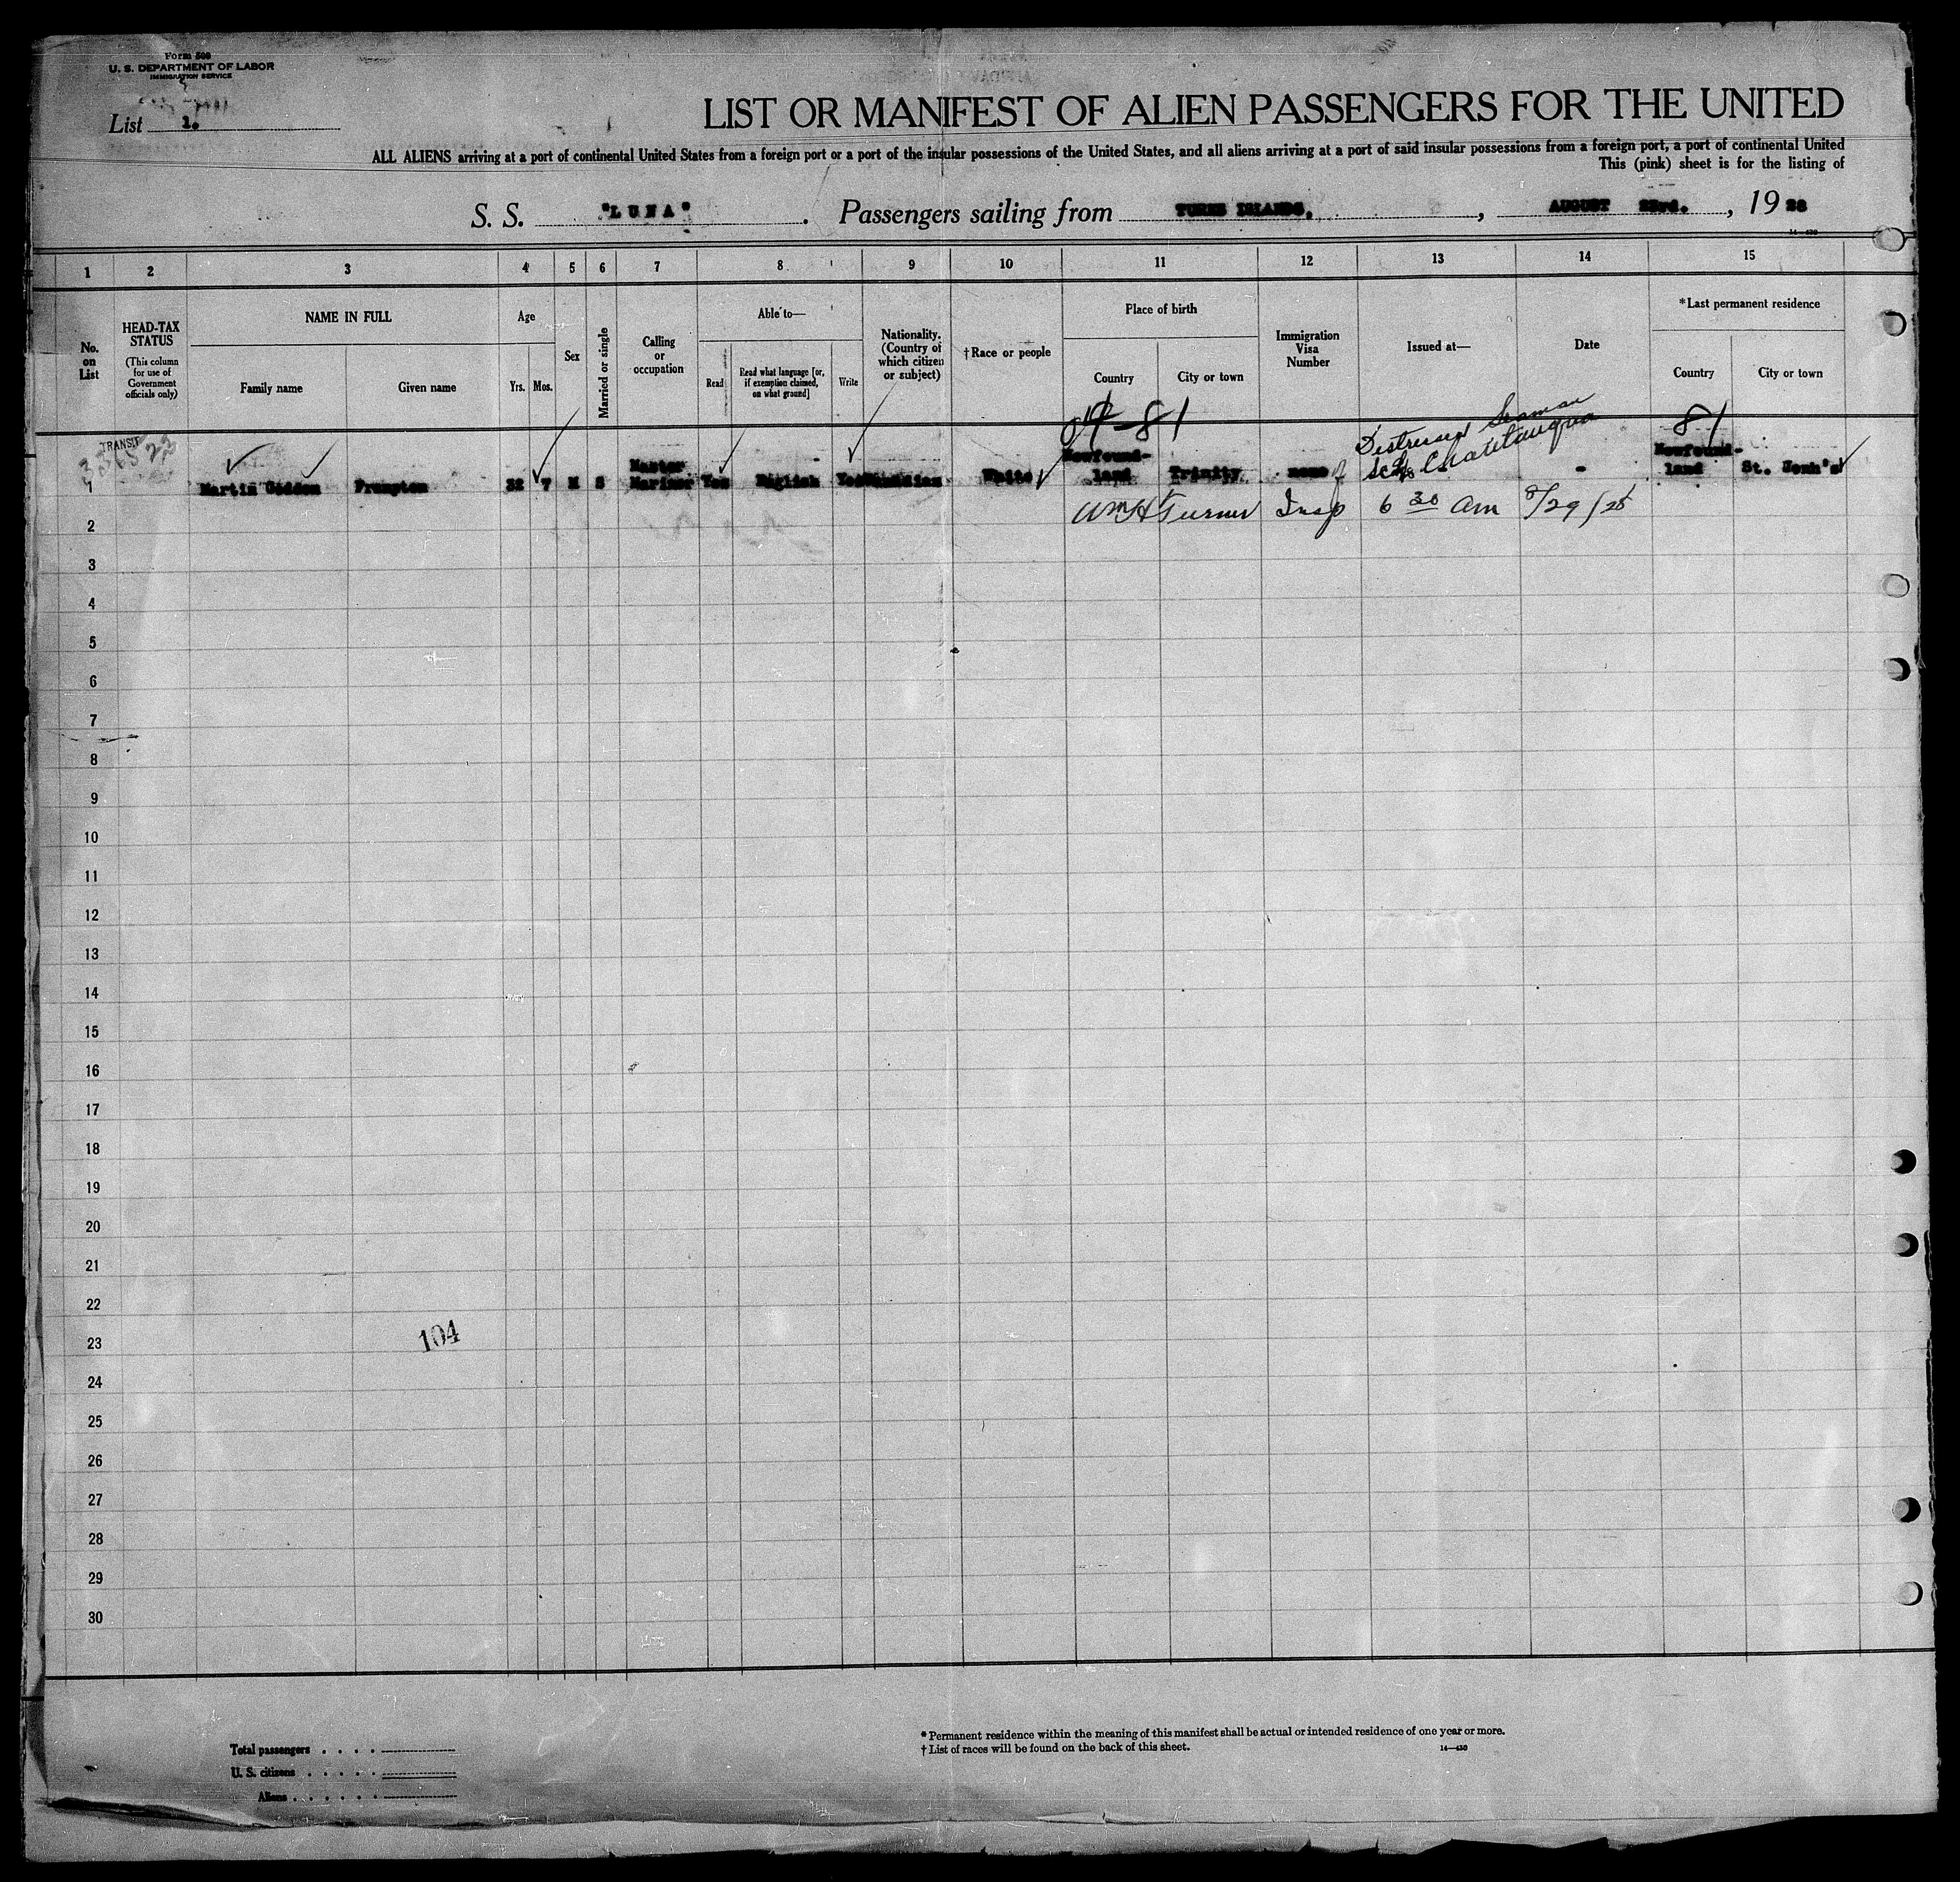 Form 500
U. S. DEPARTMENT OF LABOR
IMMIGRATION SERVICE
List 1.
LIST OR MANIFEST OF ALIEN PASSENGERS FOR THE UNITED
ALL ALIENS arriving at a port of continental United States from a foreign port or a port of the insular possessions of the United States, and all aliens arriving at a port of said insular possessions from a foreign port, a port of continental United
This (pink) sheet is for the listing of
S. S. "LUNA". Passengers sailing from TURKS ISLANDS, , AUGUST 23rd. , 1928
14—430
1 2 3 4 5 6 7 8 9 10 11 12 13 14 15
No. on List
HEAD-TAX STATUS
(This column for use of Government officials only)
NAME IN FULL
Family name
Given name
Age
Yrs. Mos.
Sex
Married or single
Calling or occupation
Able to—
Read
Read what language [or, if exemption claimed, on what ground]
Write
Nationality. (Country of which citizen or subject)
†Race or people
Place of birth
Country
City or town
Immigration Visa Number
Issued at—
Date
*Last permanent residence
Country
City or town
81
81
Distressed Seaman
Sch Chautauqua
TRANSIT
1 Martin Godden Frampton 32 7 M S Master Mariner Yes English Yes Canadian White Newfound-land Trinity none - Newfound-land St. Jonh's
2 Wm H Turner Insp 6 30 am 8/29/28
3
4
5
6
7
8
9
10
11
12
13
14
15
16
17
18
19
20
21
22
23
104
24
25
26
27
28
29
30
Total passengers . . . .
U. S. citizens . . . . .
Aliens . . . . . .
* Permanent residence within the meaning of this manifest shall be actual or intended residence of one year or more.
† List of races will be found on the back of this sheet.
14—430